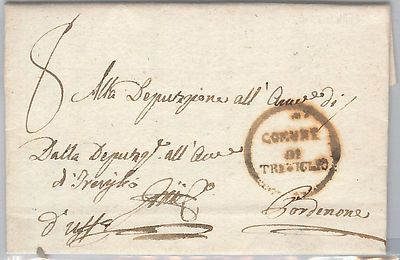 8
Alla Deputazione all' di
COMUNE
DI
TREVIGLIO
Dalla Deputaz.e all'
di Treviglio
d'Uff.o
Pordenone